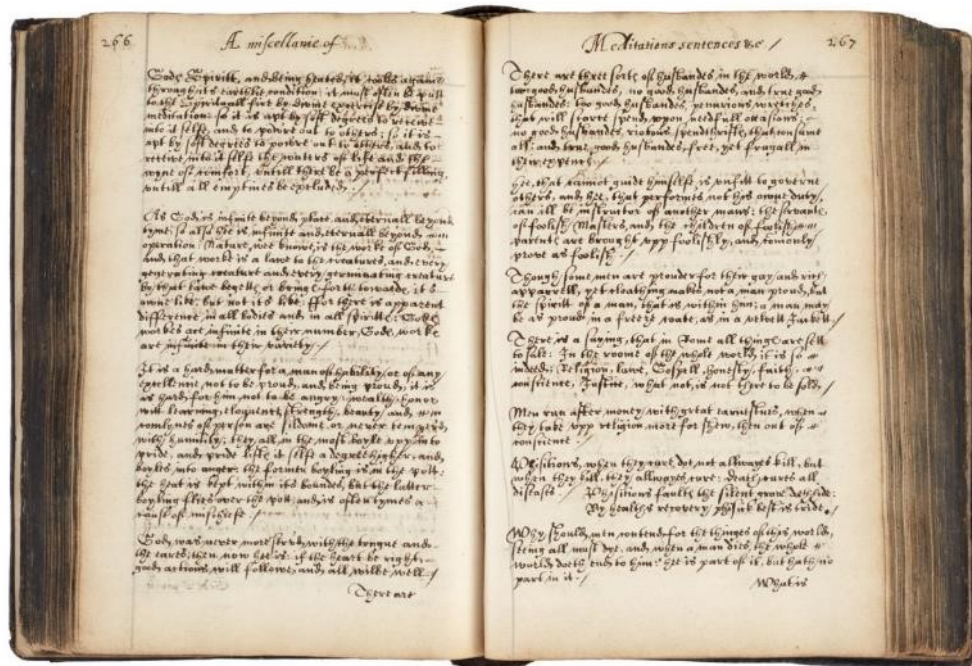 266
A miscellanie of
Gods Spiritt, and being heated, it cooles againe
through its earthlie condition: it must often be putt
to the Spirituall fire by divine exercise by divine
meditation: so it is apt by soft degrees to receive
into it selfe, and to powre out to others: so it is
apt by soft degrees to powre out to others, and to
receive into it selfe the waters of life and the
wyne of comfort, untill there be a perfect filling,
untill all emptines be excluded:/
As God is infinite beyond place, and eternall beyond
tyme: so also hee is infinite and eternall beyond
operation: Nature, wee knowe, is the worke of God,
and that worke is a lawe to the creatures, and every
generating creature and every germinating creature
by that lawe begetts or brings forth towards its
owne like, but not its like: ffor there is apparent
difference in all bodies and in all spiritts: Gods
workes are infinite in their number, Gods workes
are infinite in their variety:/
It is a hard matter for a man of hability, or of any
excellence not to be proud, and being proud, it is
as hard for him not to be angry: wealth, honor
witt learning, eloquence, strength, beauty and
comlynes of person are sildome or never tempered
with humility: they all in the most boyle upp into
pride, and pride lifts it selfe a degree higher, and
boyles into anger: the former boyling is in the pott:
the heat is kept within its bounds, but the latter
boyling flies over the pott and is often tymes a
cause of mischiefe:/
God was never more serd with the tongue and
the eares, then now hee is: if the heart be right,
good actions will followe and all wilbe well:/
There are
Meditations sentences &c /
267
There are three sorts of husbandes in the world,
too good husbandes, no good husbandes, and true good
husbandes: too good husbandes, penurious wretches,
that will scarce spend upon needfull occasions:
no good husbandes, riotous spendthrifts, that consume
all: and true good husbandes, free, yet frugall in
their expence:/
Hee, that cannot guide himselfe, is unfitt to governe
others, and hee, that performes not his owne duty,
can ill be instructor of another mans: the servants
of foolish Masters, and the children of foolish
parents are brought upp foolishly, and comonly
prove as foolish:/
Though some men are prouder for their gay and rich
apparrell, yet cloathing makes not a man proud, but
the spiritt of a man, that is within him: a man may
be as proud in a freeze coate, as in a velvett Jackett:/
There is a saying, that in Rome all things are sett
to sale: In the roome of the whole world, it is so
indeed: Religion, lawe, Gospell, honesty, faith,
conscience, Justice, what not, is not there to be sold,/
Men run after money with great earnestnes, when
they take upp religion more for shew, then out of
conscience:/
Phisitions, when they cure, doe not allwayes kill, but
when they kill, they allwayes cure: death cures all
diseases: Phisitions faults the silent grave doth hide:
By healths recovery phisick best is tride,/
Why should men contend for the thinges of this world,
seeing all must dye, and when a man dies, the whole
world doeth end to him: hee is part of it, but hath no
part in it:/
What is